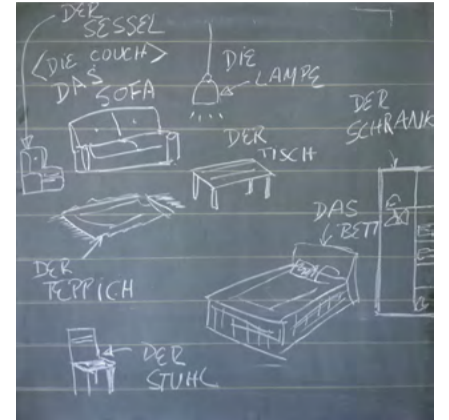 DER
SESSEL
<DIE COUCH>
DAS
SOFA
DIE
LAMPE
DER
SCHRANK
DER
TISCH
DAS
BETT
DER
TEPPICH
DER
STUHL